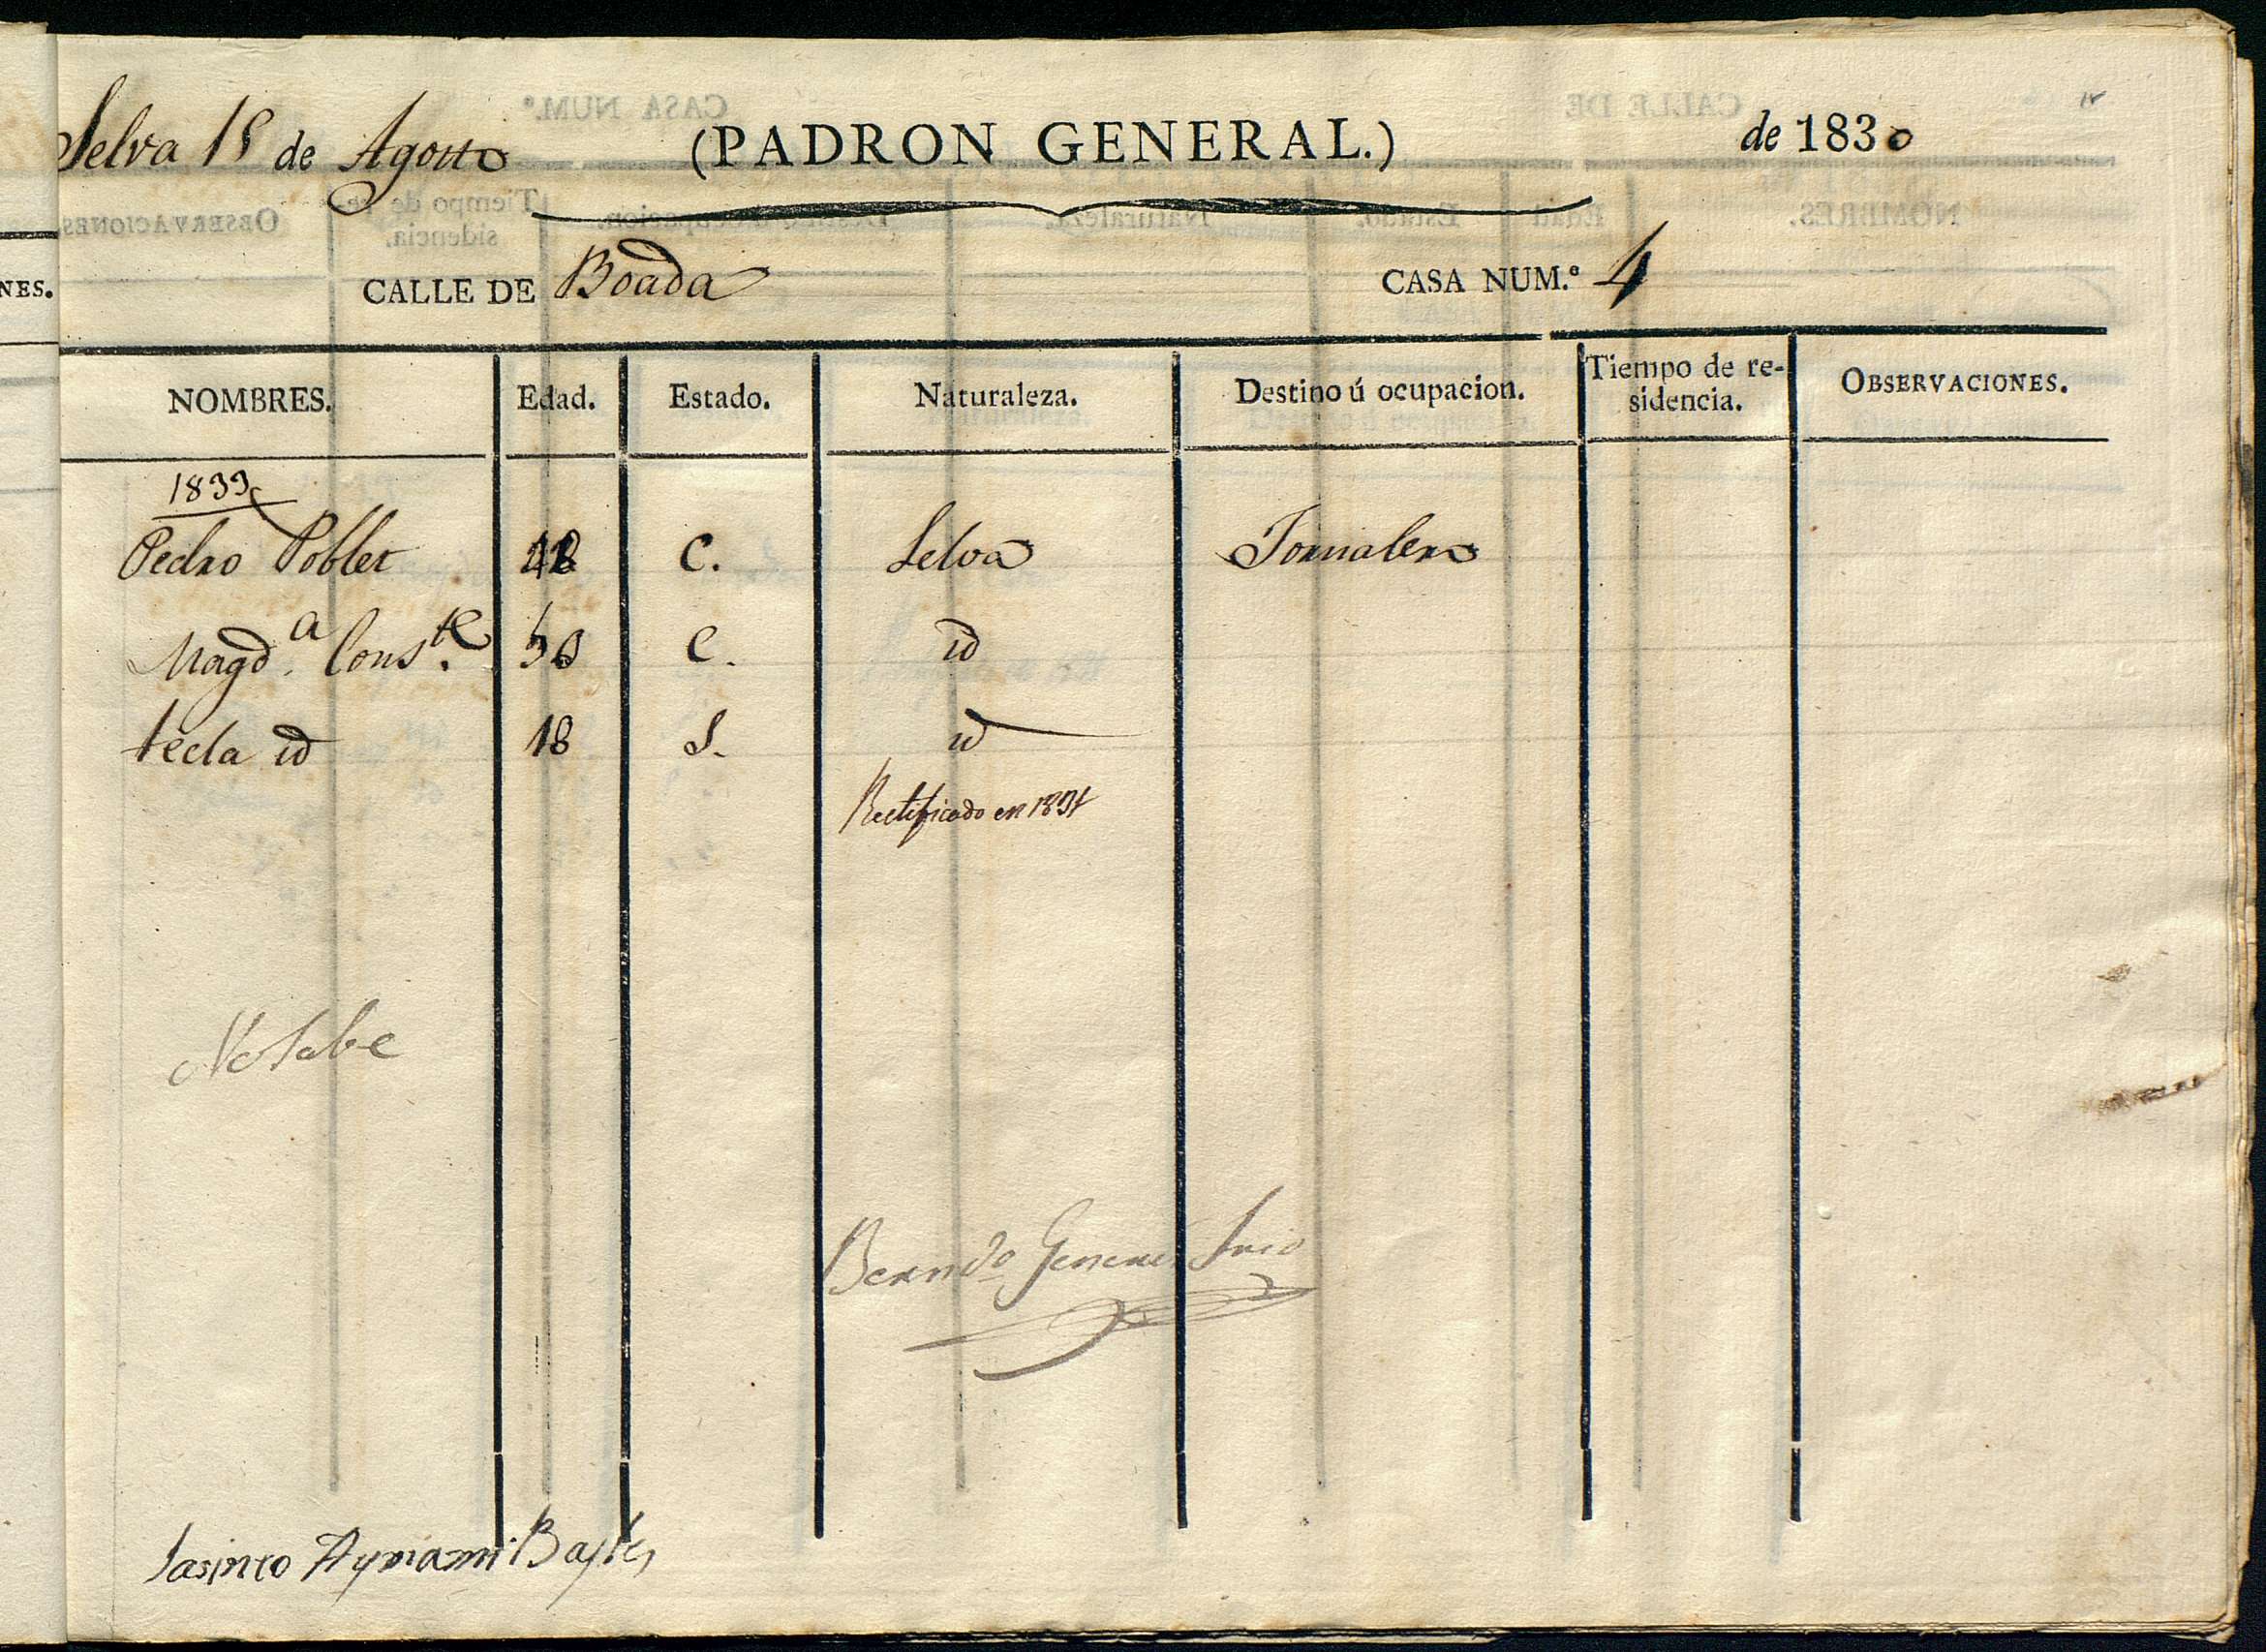 Selva 18 de Agosto (PADRON GENERAL.) de 1830
CALLE DE Boada CASA NUM.º 4
NES.
NOMBRES. Edad. Estado. Naturaleza. Destino ú ocupacion. Tiempo de re-
sidencia. OBSERVACIONES.
1833
Pedro Poblet C. Selva Jornalero
Magd.ª Cons.te C. id
tecla id 18 S. id
Rectificado en 1831
No Sabe
Berndo Generes Srio
Jasinto Aymami Bayle